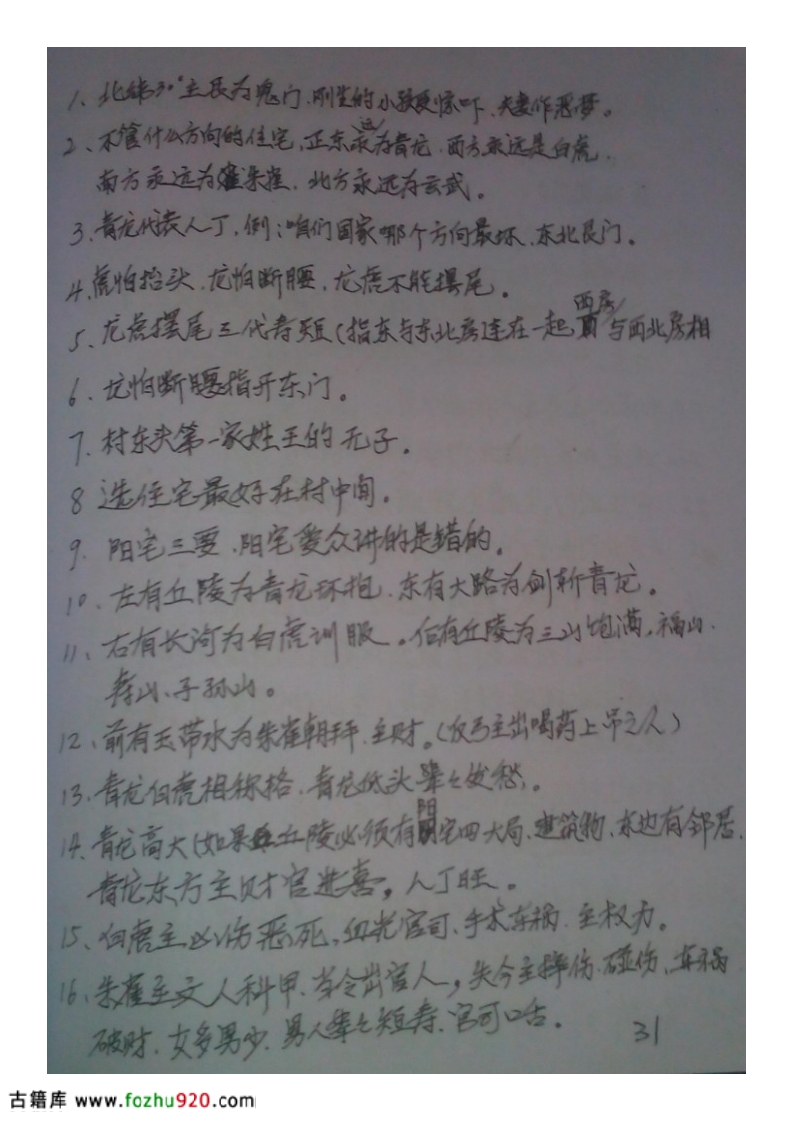 1、北纬30°主艮为鬼门、刚生的小孩受惊吓、夫妻作恶梦。
2、不管什么方向的住宅,正东永远为青龙、西方永远是白虎、
南方永远为朱雀、北方永远为玄武。
3、青龙代表人丁,例:咱们国家哪个方向最坏、东北艮门。
4、虎怕抬头、龙怕断腰、龙虎不能摆尾。
5、龙虎摆尾三代寿短(指东与东北房连在一起西房与西北房相
6、龙怕断腰指开东门。
7、村东头第一家姓王的无子。
8 选住宅最好在村中间。
9、阳宅三要、阳宅爱众讲的是错的。
10、左有丘陵为青龙环抱、东有大路为剑斩青龙。
11、右有长河为白虎训服。后有丘陵为三山饱满,福山、
寿山、子孙山。
12、前有玉带水为朱雀朝拜、主财。(反弓主出喝药上吊之人)
13、青龙白虎相称格、青龙低头辈辈发愁。
14、青龙高大(如果丘陵必须有阳宅四大局、建筑物、东边有邻居、
青龙东方主财官进喜,人丁旺。
15、白虎主凶伤恶死,血光官司、手术车祸、主权力。
16、朱雀主文人科甲、当令出官人,失令主摔伤、碰伤、车祸
破财、女多男少、男人辈辈短寿、官司口舌。
31
古籍库 www.fozhu920.com